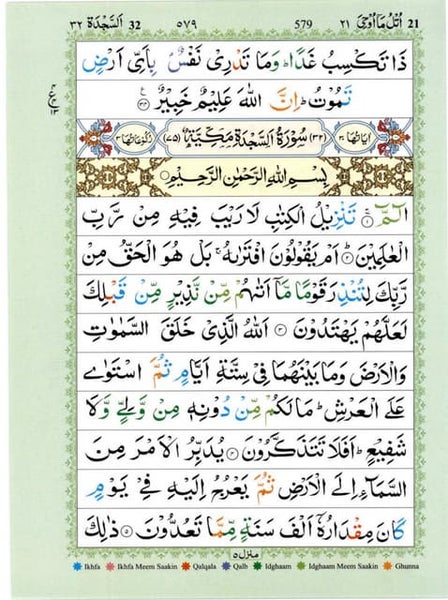 اَلسَّجْدَة ٣٢ 32 ٥٧٩ 579 اُتْلُ مَآ اُوْحِیَ ٢١ 21
ذَا تَكْسِبُ غَدًا ؕ وَمَا تَدْرِیْ نَفْسٌۢ بِاَیِّ اَرْضٍ
تَمُوْتُ ؕ اِنَّ اللّٰهَ عَلِیْمٌ خَبِیْرٌ ۠ ٣٤
اٰیَاتُهَا ٣٠ (٣٢) سُوْرَةُ السَّجْدَةِ مَكِّیَّةٌ (٧٥) رُكُوْعَاتُهَا ٣
بِسْمِ اللّٰهِ الرَّحْمٰنِ الرَّحِیْمِ
الٓمّٓ ۚ ١ تَنْزِیْلُ الْكِتٰبِ لَا رَیْبَ فِیْهِ مِنْ رَّبِّ
الْعٰلَمِیْنَ ؕ ٢ اَمْ یَقُوْلُوْنَ افْتَرٰىهُ ۚ بَلْ هُوَ الْحَقُّ مِنْ
رَّبِّكَ لِتُنْذِرَ قَوْمًا مَّاۤ اَتٰىهُمْ مِّنْ نَّذِیْرٍ مِّنْ قَبْلِكَ
لَعَلَّهُمْ یَهْتَدُوْنَ ٣ اَللّٰهُ الَّذِیْ خَلَقَ السَّمٰوٰتِ
وَالْاَرْضَ وَمَا بَیْنَهُمَا فِیْ سِتَّةِ اَیَّامٍ ثُمَّ اسْتَوٰى
عَلَى الْعَرْشِ ؕ مَا لَكُمْ مِّنْ دُوْنِهٖ مِنْ وَّلِیٍّ وَّلَا
شَفِیْعٍ ؕ اَفَلَا تَتَذَكَّرُوْنَ ٤ یُدَبِّرُ الْاَمْرَ مِنَ
السَّمَآءِ اِلَى الْاَرْضِ ثُمَّ یَعْرُجُ اِلَیْهِ فِیْ یَوْمٍ
كَانَ مِقْدَارُهٗۤ اَلْفَ سَنَةٍ مِّمَّا تَعُدُّوْنَ ٥ ذٰلِكَ
منزل ٥
Ikhfa Ikhfa Meem Saakin Qalqala Qalb Idghaam Idghaam Meem Saakin Ghunna